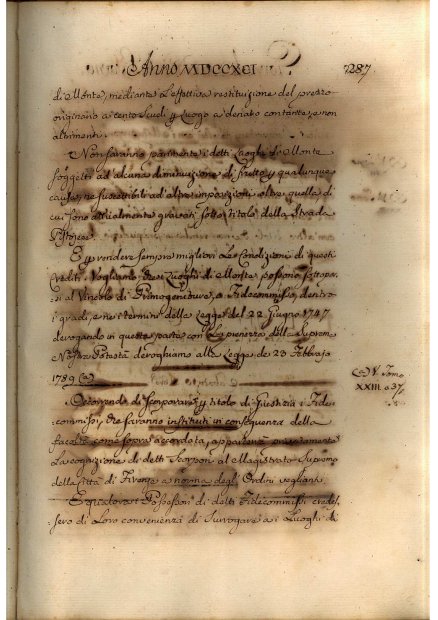 Anno MDCCXCI
287
di Monte, mediante l'effettiva restituzione del prezzo
originario a cento Scudi p Luogo a denaro contante, e non
altrimenti.
Non saranno parimente i detti Luoghi di Monte
soggetti ad alcuna diminuzione di frutto p qualunque
causa, ne suscettibili ad altre imposizioni oltre quella di
cui sono attualmente gravati sotto titolo della Strada
Pistojese.
E p rendere sempre migliori le Condizioni di questi
Crediti, Vogliamo che i Luoghi di Monte possono sottopor
si al Vincolo di Primogeniture, o Fidecommisso, dentro
i gradi, e nei termini della Legge del 22 Giugno 1747
derogando in questa parte con la pienezza della Suprema
Nostra Potestà deroghiamo alla Legge de 23 Febbrajo
1789 (a)
(a) V. Tomo
XXIII. a 37
Occorrendo di p titolo di Giustizia i Fide-
commissi, che saranno instituiti in conseguenza della
facoltà come sopra accordata, apparterrà privatamente
la cognizione di detti al Magistrato Supremo
della Città di Firenze a norma degl' Ordini veglianti.
E qualora i Possessori di detti Fidecommissi credes-
sero di Loro convenienza di Surrogare a i Luoghi di